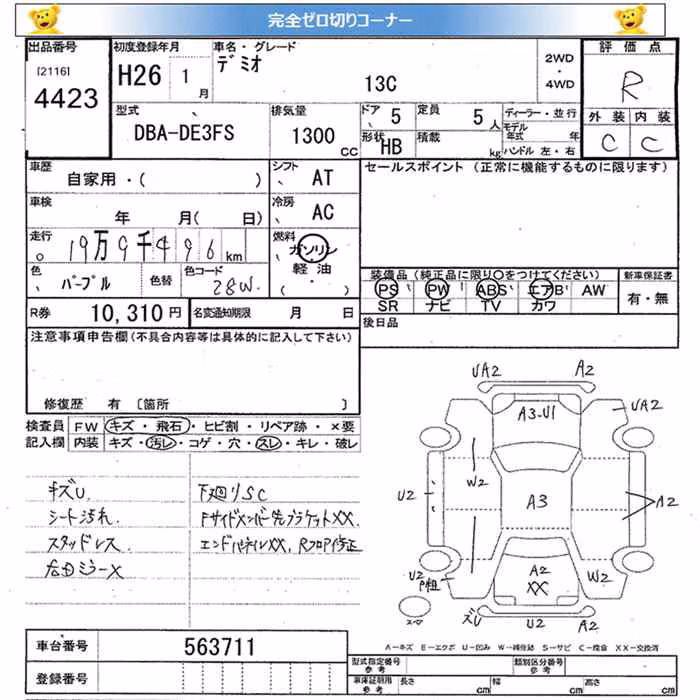 完全ゼロ切りコーナー
出品番号
[2116]
4423
初度登録年月
H26 1月
車名・グレード
デミオ
13C
2WD
・
4WD
評価点
R
外装 内装
C C
型式
DBA-DE3FS
排気量
1300 CC
ドア 5
形状 HB
定員 5人
積載 kg
ディーラー・並行
モデル年式 年
ハンドル 左・右
車歴
自家用・( )
シフト AT
車検
年 月( 日)
冷房 AC
走行
19万9千496 km
燃料
ガソリン
軽油
( ・ )
色 パープル
色替
色コード 28W
R券 10,310円
名変通知期限 月 日
セールスポイント (正常に機能するものに限ります)
装備品 (純正品に限り○をつけてください)
PS PW ABS エアB AW
SR ナビ TV カワ
新車保証書
有・無
後日品
注意事項申告欄(不具合内容等は具体的に記入して下さい)
修復歴 有 [箇所 ]
検査員記入欄
FW キズ・飛石・ヒビ割・リペア跡・×要
内装 キズ・汚レ・コゲ・穴・スレ・キレ・破レ
キズU
シート汚れ
スタッドレス
右Dミラー×
下廻りSC
Fサイドメンバー先ブラケットXX
エンドパネルXX, Rフロア修正
UA2 A2
A3-U1 UA2
W2
U2 A3 A2
U2
A2
XX
W2
ズU U2 A2
A-キズ E-エクボ U-凹み W-補修跡 S-サビ C-腐食 XX-交換済
車台番号 563711
登録番号
型式指定番号
参考
類別区分番号
参考
車庫証明用
参考
長さ cm 幅 cm 高さ cm